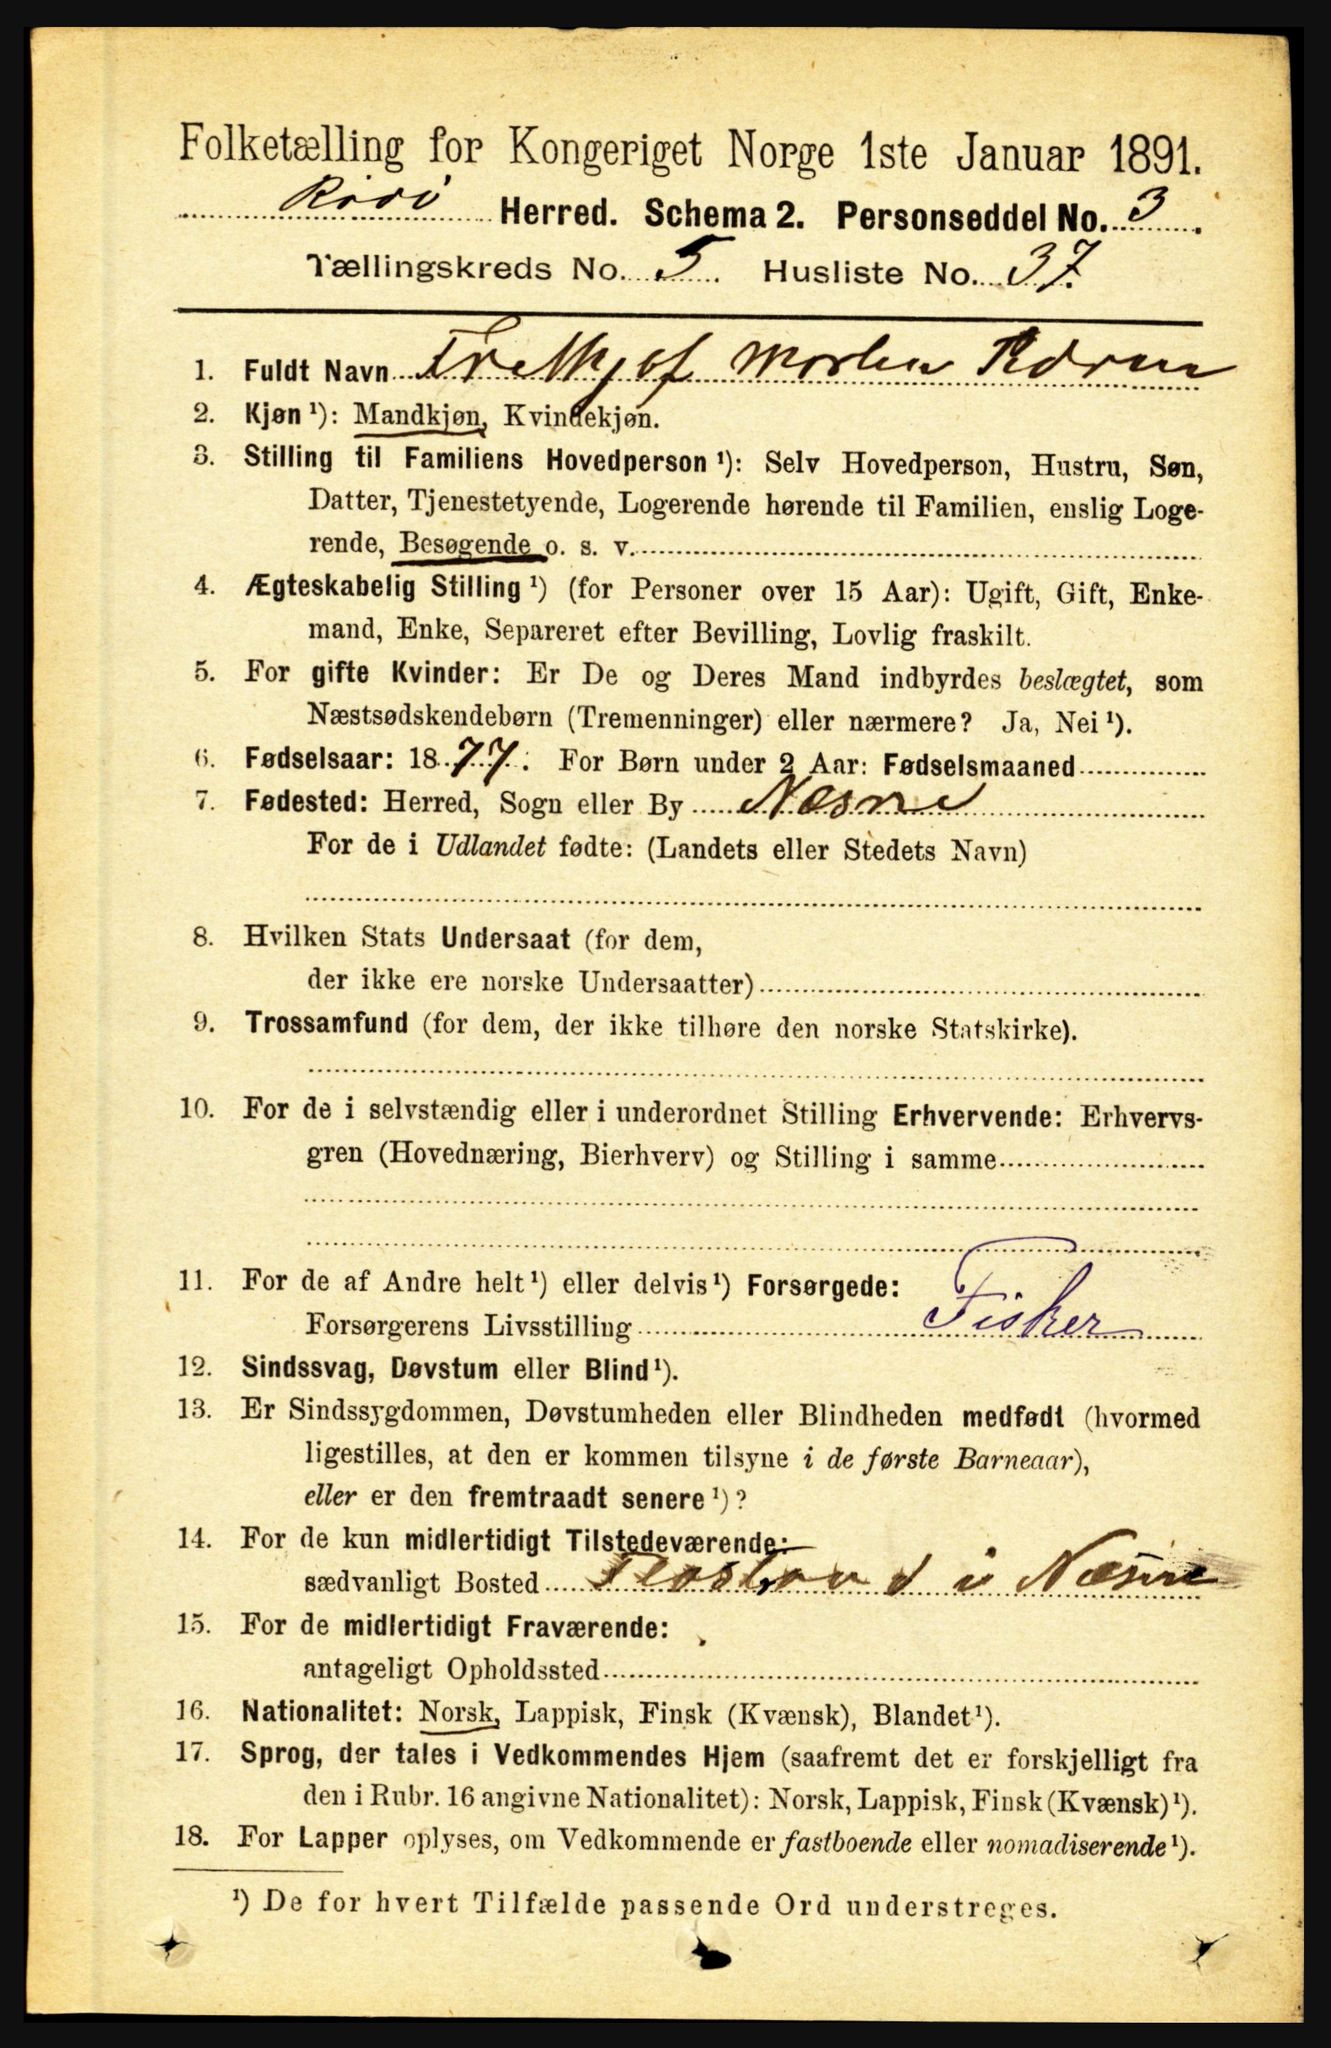 Folketælling for Kongeriget Norge 1ste Januar 1891.
Rödö Herred. Schema 2. Personseddel No. 3.
Tællingskreds No. 5. Husliste No. 37.
1. Fuldt Navn Frethjof Morten
2. Kjøn ¹): Mandkjøn, Kvindekjøn.
3. Stilling til Familiens Hovedperson ¹): Selv Hovedperson, Hustru, Søn,
Datter, Tjenestetyende, Logerende hørende til Familien, enslig Loge-
rende, Besøgende o. s. v.
4. Ægteskabelig Stilling ¹) (for Personer over 15 Aar): Ugift, Gift, Enke-
mand, Enke, Separeret efter Bevilling, Lovlig fraskilt.
5. For gifte Kvinder: Er De og Deres Mand indbyrdes beslægtet, som
Næstsødskendebørn (Tremenninger) eller nærmere? Ja, Nei ¹).
6. Fødselsaar: 1877. For Børn under 2 Aar: Fødselsmaaned
7. Fødested: Herred, Sogn eller By Næsne
For de i Udlandet fødte: (Landets eller Stedets Navn)
8. Hvilken Stats Undersaat (for dem,
der ikke ere norske Undersaatter)
9. Trossamfund (for dem, der ikke tilhøre den norske Statskirke).
10. For de i selvstændig eller i underordnet Stilling Erhvervende: Erhvervs-
gren (Hovednæring, Bierhverv) og Stilling i samme
11. For de af Andre helt ¹) eller delvis ¹) Forsørgede:
Forsørgerens Livsstilling Fisker
12. Sindssvag, Døvstum eller Blind ¹).
13. Er Sindssygdommen, Døvstumheden eller Blindheden medfødt (hvormed
ligestilles, at den er kommen tilsyne i de første Barneaar),
eller er den fremtraadt senere ¹)?
14. For de kun midlertidigt Tilstedeværende:
sædvanligt Bosted i Næsne
15. For de midlertidigt Fraværende:
antageligt Opholdssted
16. Nationalitet: Norsk, Lappisk, Finsk (Kvænsk), Blandet ¹).
17. Sprog, der tales i Vedkommendes Hjem (saafremt det er forskjelligt fra
den i Rubr. 16 angivne Nationalitet): Norsk, Lappisk, Finsk (Kvænsk) ¹).
18. For Lapper oplyses, om Vedkommende er fastboende eller nomadiserende ¹).
¹) De for hvert Tilfælde passende Ord understreges.